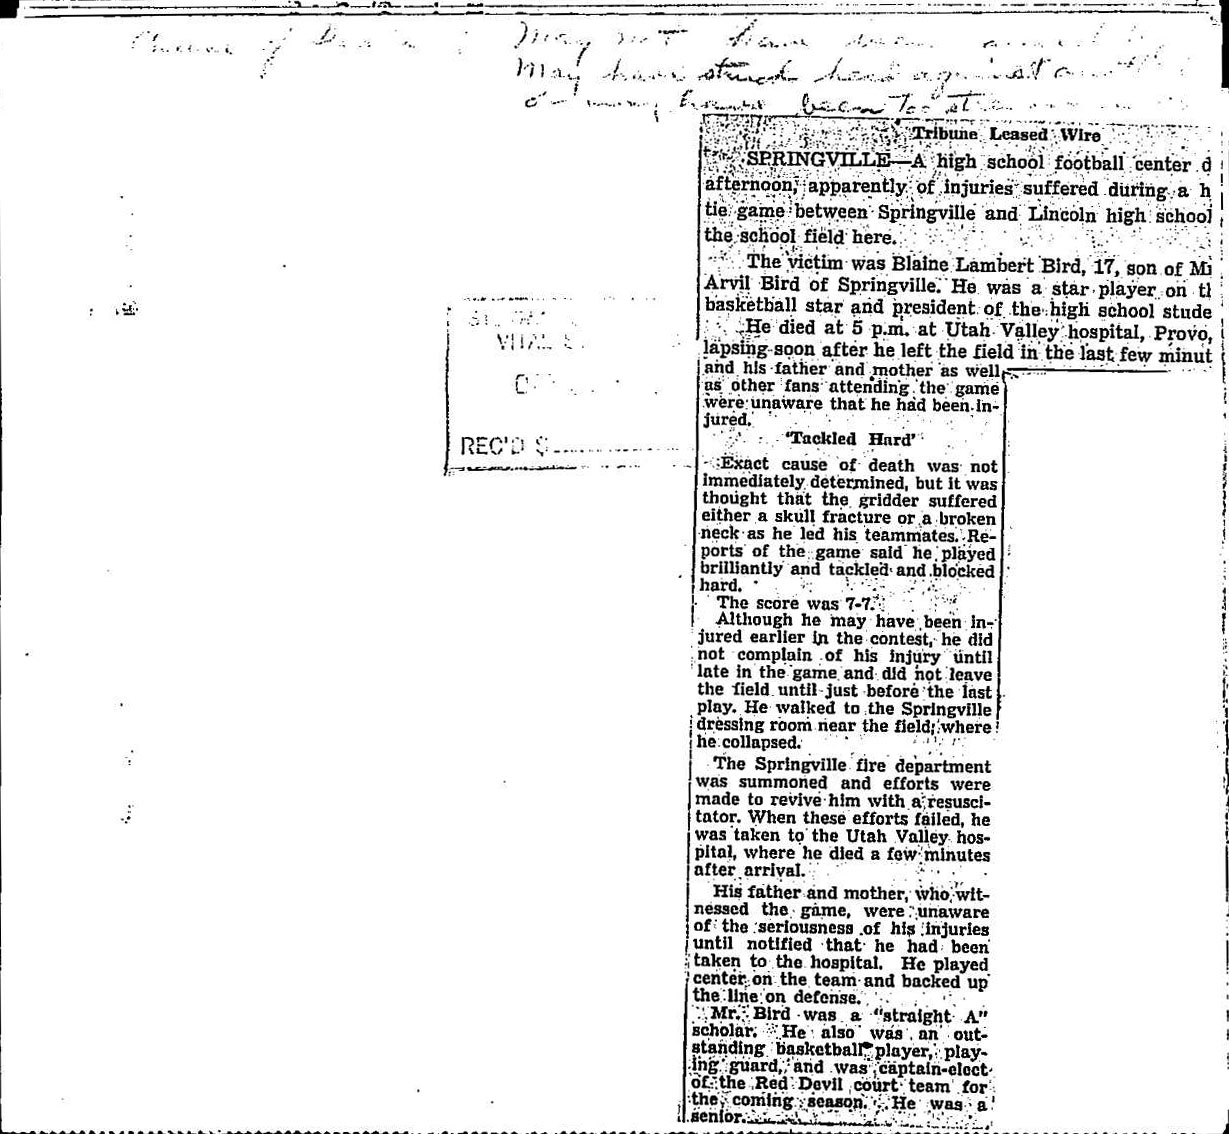 May not have been
May have struck head against
or may have been
Tribune Leased Wire
SPRINGVILLE—A high school football center d
afternoon, apparently of injuries suffered during a h
tie game between Springville and Lincoln high school
the school field here.
The victim was Blaine Lambert Bird, 17, son of M
Arvil Bird of Springville. He was a star player on t
basketball star and president of the high school stude
He died at 5 p.m. at Utah Valley hospital, Provo,
lapsing soon after he left the field in the last few minut
and his father and mother as well
as other fans attending the game
were unaware that he had been in-
jured.
'Tackled Hard'
Exact cause of death was not
immediately determined, but it was
thought that the gridder suffered
either a skull fracture or a broken
neck as he led his teammates. Re-
ports of the game said he played
brilliantly and tackled and blocked
hard.
The score was 7-7.
Although he may have been in-
jured earlier in the contest, he did
not complain of his injury until
late in the game and did not leave
the field until just before the last
play. He walked to the Springville
dressing room near the field, where
he collapsed.
The Springville fire department
was summoned and efforts were
made to revive him with a resusci-
tator. When these efforts failed, he
was taken to the Utah Valley hos-
pital, where he died a few minutes
after arrival.
His father and mother, who wit-
nessed the game, were unaware
of the seriousness of his injuries
until notified that he had been
taken to the hospital. He played
center on the team and backed up
the line on defense.
Mr. Bird was a "straight A"
scholar. He also was an out-
standing basketball player, play-
ing guard, and was captain-elect
of the Red Devil court team for
the coming season. He was a
senior.
VITAL
REC'D